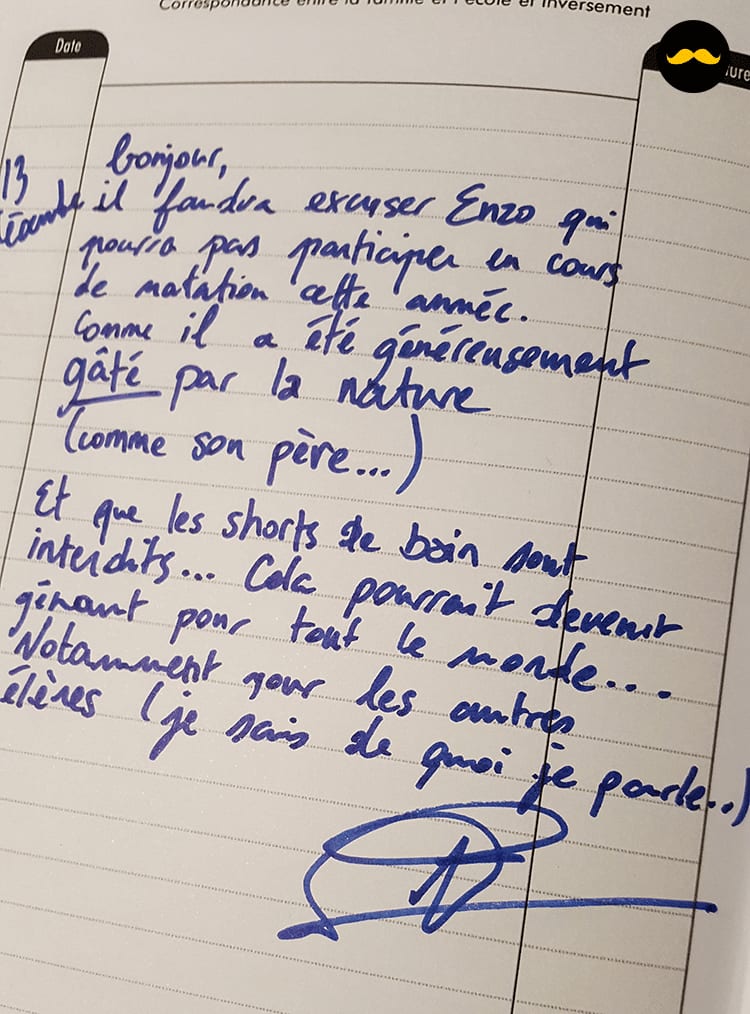 Correspondance entre la famille et l'école et inversement
Date
ure
13
bonjour,
décembre
il faudra excuser Enzo qui
pourra pas participer en cours
de natation cette année.
Comme il a été généreusement
gâté par la nature
(comme son père...)
Et que les shorts de bain sont
interdits... Cela pourrait devenir
gênant pour tout le monde...
Notamment pour les autres
élèves (je sais de quoi je parle..)